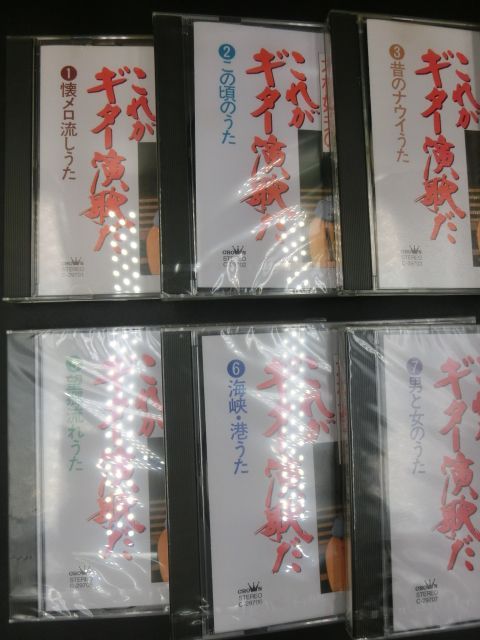 ❶懐メロ流しうた
これが
ギター演歌だ
CROWN
STEREO
C-29701
❷この頃のうた
これが
ギター演歌だ
CROWN
STEREO
C-29702
❸昔のナウイうた
これが
ギター演歌だ
CROWN
STEREO
C-29703
流れうた
これが
ギター演歌だ
CROWN
STEREO
❻海峡・港うた
これが
ギター演歌だ
CROWN
STEREO
C-29706
❼男と女のうた
これが
ギター演歌だ
CROWN
STEREO
C-29707